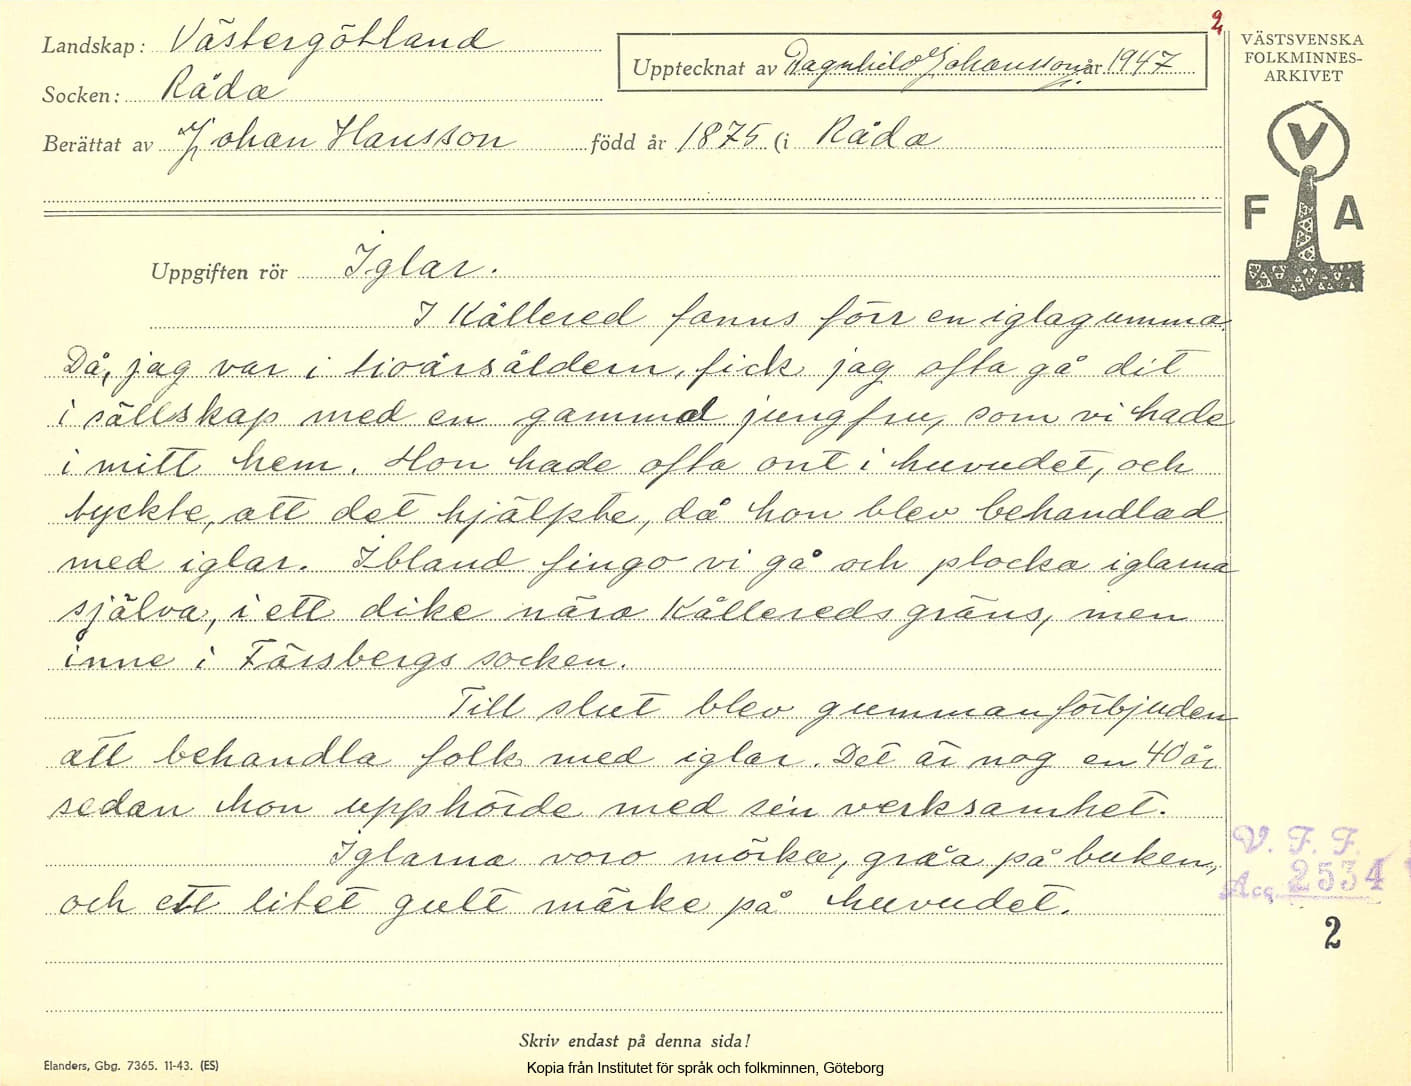 2
Landskap: Västergötland
Upptecknat av Dagnhild Johansson år 1947
VÄSTSVENSKA
FOLKMINNES-
ARKIVET
Socken: Råda
Berättat av Johan Hansson född år 1875 (i Råda
V
F A
Uppgiften rör Iglar.
I Kållered fanns förr en iglagumma.
Då, jag var i tioårsåldern, fick jag ofta gå dit
i sällskap med en gammal jungfru, som vi hade
i mitt hem. Hon hade ofta ont i huvudet, och
tyckte, att det hjälpte, då hon blev behandlad
med iglar. Ibland fingo vi gå och plocka iglarna
själva, i ett dike nära Kållereds gräns, men
inne i Färsbergs socken.
Till slut blev gumman förbjuden
att behandla folk med iglar. Det är nog en 40 år
sedan hon upphörde med sin verksamhet.
Iglarna voro mörka, gråa på buken,
och ett litet gult märke på huvudet.
V. F. F.
Acq. 2534
2
Skriv endast på denna sida!
Elanders, Gbg. 7365. 11-43. (ES)
Kopia från Institutet för språk och folkminnen, Göteborg